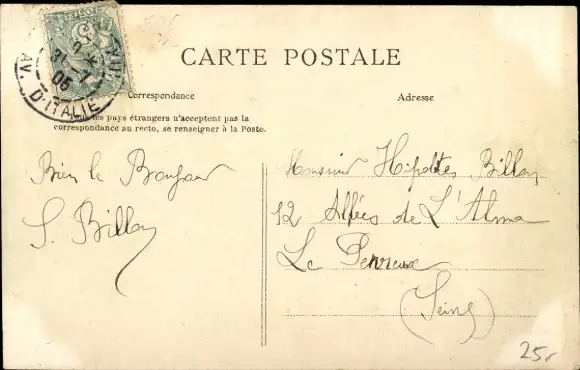 CARTE POSTALE
Correspondance
Adresse
les pays étrangers n'acceptent pas la
correspondance au recto, se renseigner à la Poste.
AV. D'ITALIE
31 -7
05
Bien le Bonjour
S. Billoy
Monsieur Hipolites Billoy
12 Allées de L'Alma
Le Perreux
(Seine)
25